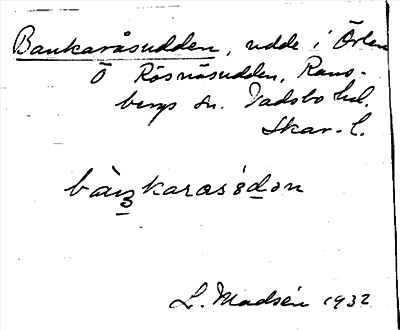 Bankaråsudden, udde i Örlen
Ö Rösnäsudden, Rans-
bergs sn. Vadsbo hd.
Skar. l.
bàŋkaras'ɵdən
L. Madsén 1932